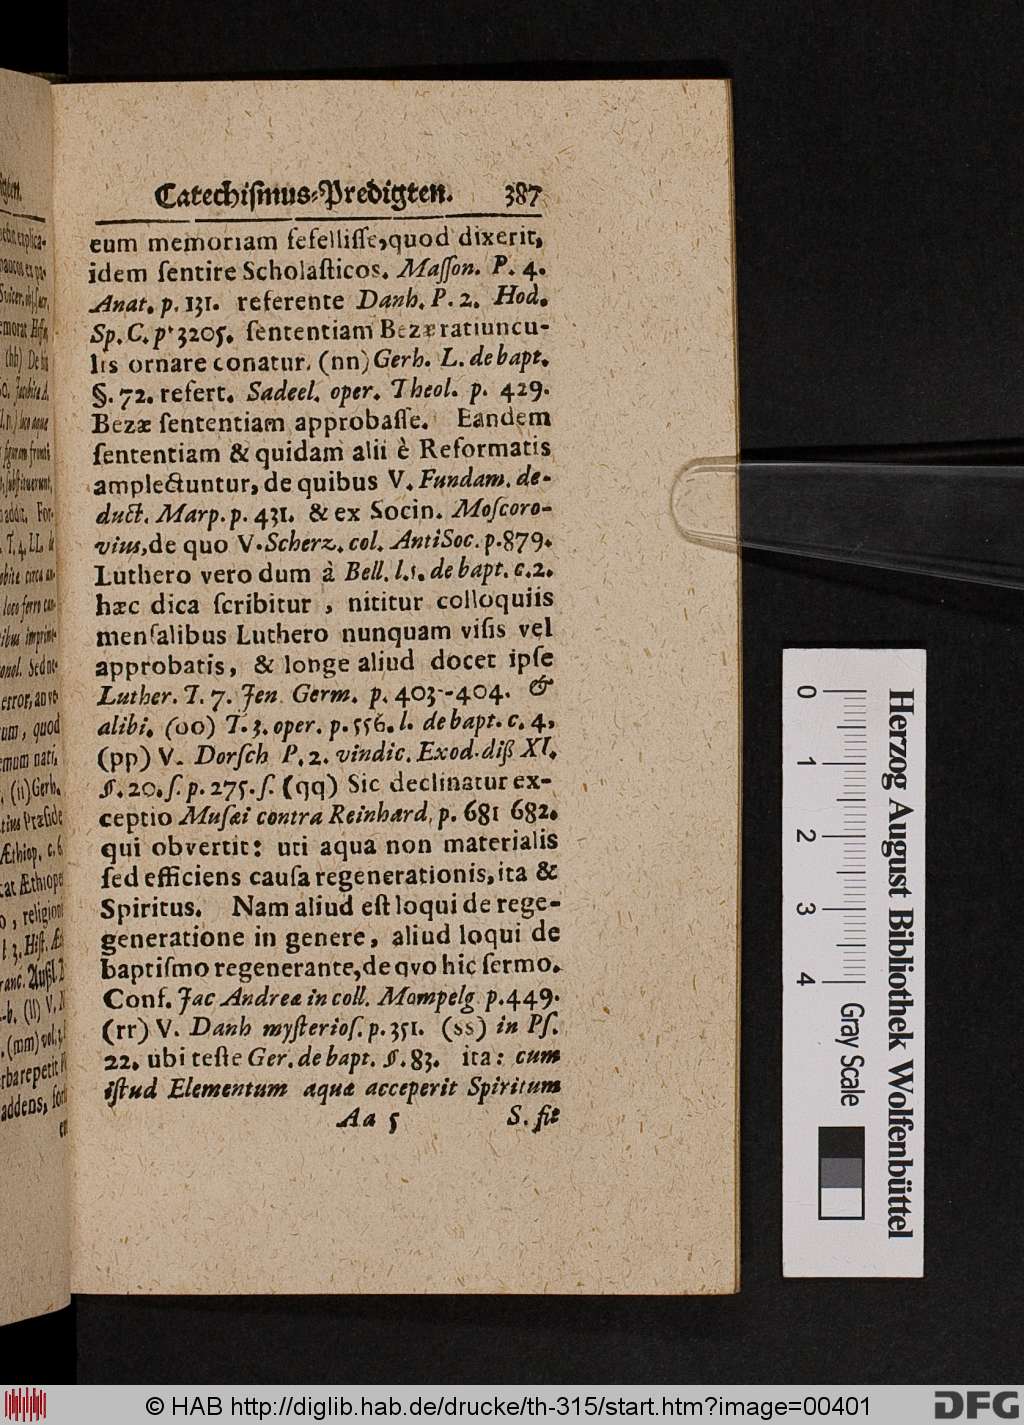 Catechiſmus-Predigten. 387
eum memoriam fefelliſſe,quod dixerit,
idem ſentire Scholaſticos. Maſſon. P. 4.
Anat. p. 131. referente Danh. P. 2. Hod.
Sp. C. p. 3205. ſententiam Bezæ ratiuncu-
lis ornare conatur. (nn) Gerh. L. de bapt.
§. 72. refert. Sadeel. oper. Theol. p. 429.
Bezæ ſententiam approbaſſe. Eandem
ſententiam & quidam alii è Reformatis
amplectuntur, de quibus V. Fundam. de-
duct. Marp. p. 431. & ex Socin. Moſcoro-
vius,de quo V. Scherz. col. AntiSoc. p.879.
Luthero vero dum à Bell. l.1. de bapt. c.2.
hæc dica ſcribitur , nititur colloquiis
menſalibus Luthero nunquam viſis vel
approbatis, & longe aliud docet ipſe
Luther. T. 7. Jen Germ. p. 403--404. &
alibi. (oo) T. 3. oper. p. 556. l. de bapt. c. 4,
(pp) V. Dorſch P. 2. vindic. Exod. diß XI.
§. 20. ſ. p. 275. ſ. (qq) Sic declinatur ex-
ceptio Muſæi contra Reinhard, p. 681 682.
qui obvertit: uti aqua non materialis
ſed efficiens cauſa regenerationis, ita &
Spiritus. Nam aliud eſt loqui de rege-
generatione in genere, aliud loqui de
baptiſmo regenerante, de qvo hic ſermo.
Conf. Jac Andreæ in coll. Mompelg p.449.
(rr) V. Danh myſterioſ. p. 351. (ss) in Pſ.
22. ubi teſte Ger. de bapt. §. 83. ita: cum
iſtud Elementum aquæ acceperit Spiritum
Aa 5 S. ſit
0 1 2 3 4
Gray Scale
Herzog August Bibliothek Wolfenbüttel
© HAB http://diglib.hab.de/drucke/th-315/start.htm?image=00401
DFG